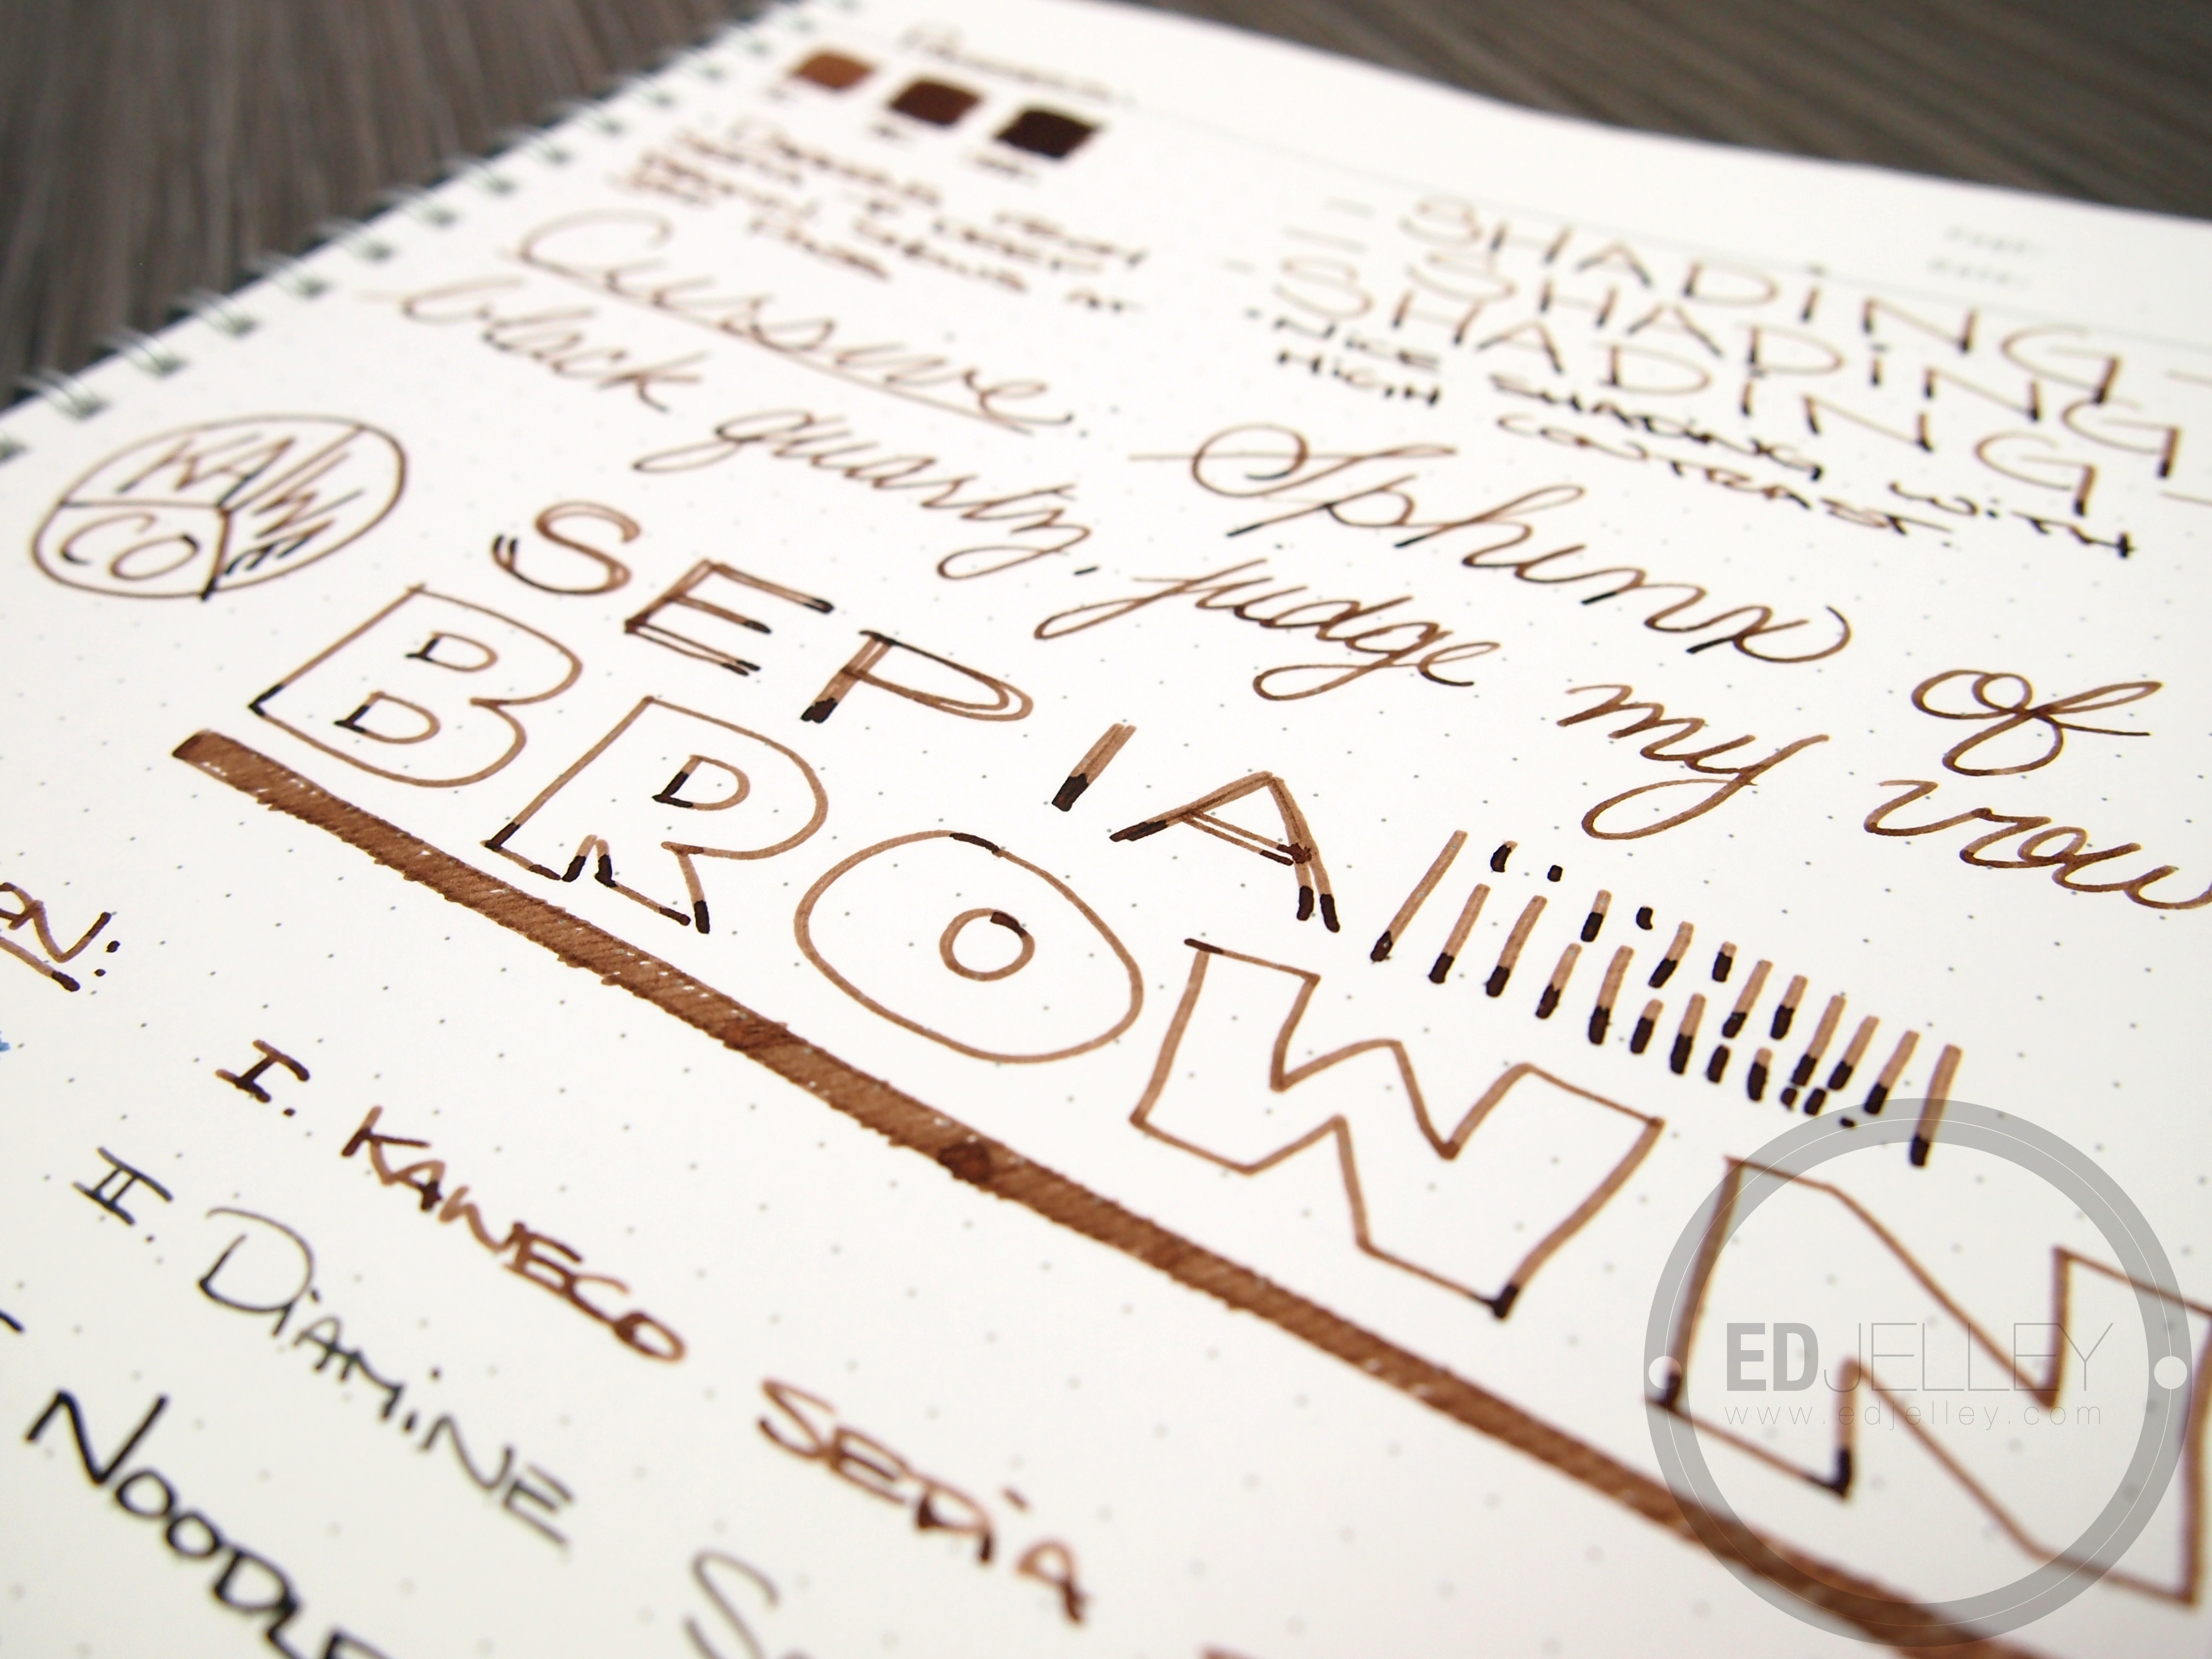 SHADING
SHADING
SHADING
NICE SHADING WITH
HIGH CONTRAST.
Cursive. Sphinx of
black quartz, judge my vow
KAWE
CO
SEPIA
BROWN
ON:
I. KAWECO SEPIA
II. DIAMINE
NOODLE
EDJELLEY
www.edjelley.com